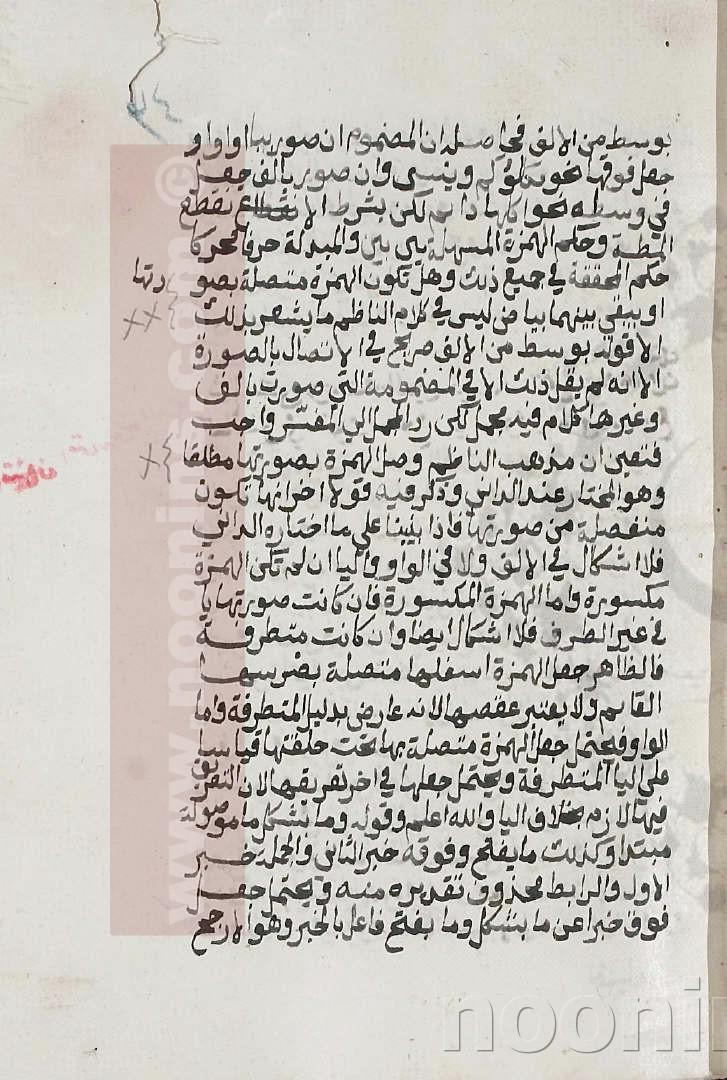 بوسط من الالف في اصلدان المضموم ان صور ببا او اواو
جعل فوقها نحو يكلؤكم وينسى وان صور بالف جعل
في وسطه نحوا كلهاذا نم لكن بشرط الانقطاع نقطع
المطة وحكم الهمزة المسهلة بين بين والمبدلة حرفا محركا
حكم المحققة في جميع ذلك وهل تكون الهمزة متصلة بصو رتها
او يبقى بينهما بياض ليس في كلام الناظم ما يشعر بذلك
الا قوله بوسط من الالف صريح في الاتصال بالصورة
الا انه لم يقل ذلك الا في المضمومة التي صورت بالف
وغيرها كلام فيه مجمل لكن رد المجمل الى المفسر واجب
فتعين ان مذهب الناظم وصل الهمزة بصورتها مطلقا
وهو المختار عند الداني وذكر فيه قولا اخر انها تكون
منفصلة من صورتها فاذا بنينا على ما اختاره الداني
فلا اشكال في الالف ولا في الواو واليا ان لم تكن الهمزة
مكسورة واما الهمزة المكسورة فان كانت صورتها يا
في غير الطرف فلا اشكال ايضا وان كانت متطرفة
فالظاهر جعل الهمزة اسفلها متصلة بضرسها
القايم ولا يعتبر عقصها لانه عارض بدليل المتطرفة واما
الواو فيحتمل جعل الهمزة متصلة بها تحت حلقتها قياسا
على اليا المتطرفة ويحتمل جعلها في اخر تعريقها لان التعريق
فيها لازم بخلاف اليا والله اعلم وقوله وما بشكل ما موصولة
مبتدا وكذلك ما يفتح وفوقه خبر الثاني والجملة خبر
الاول والرابط محذوف تقديره منه ويحتمل جعل
فوق خبرا عن ما بشكل وما بفتح فاعل بالخبر وهو الارجح
www.noonimr.com ©
noonim